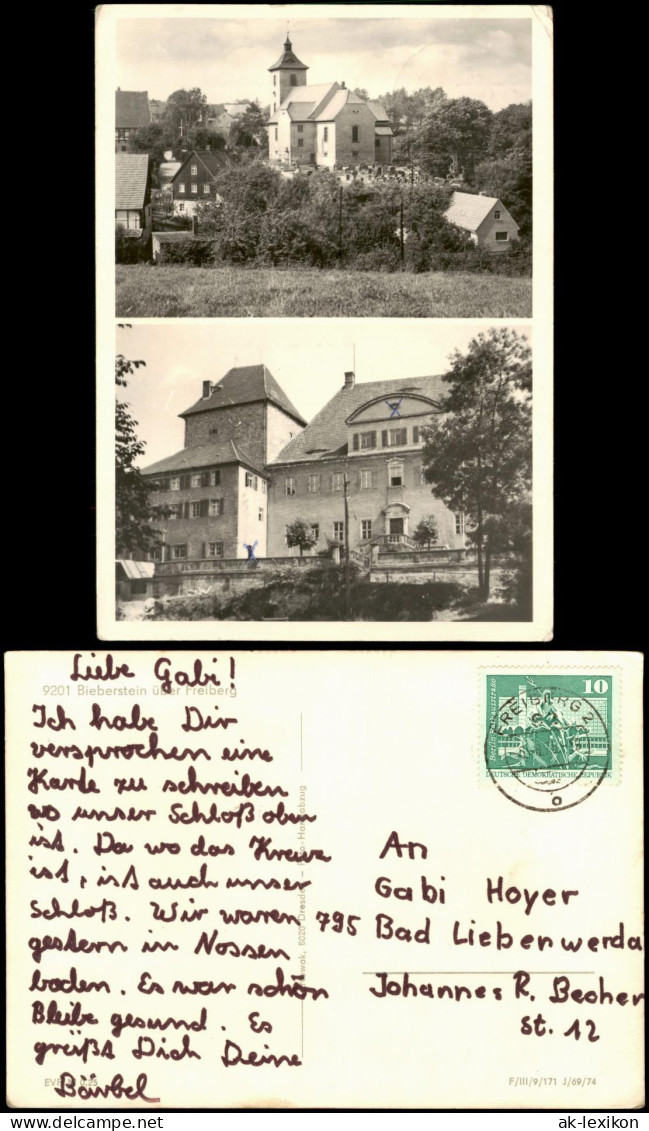 Liebe Gabi!
9201 Bieberstein über Freiberg
Ich habe Dir
versprochen eine
Karte zu schreiben
wo unser Schloß oben
ist. Da wo das Kreuz
ist, ist auch unser
Schloß. Wir waren
gestern in Nossen
baden. Es war schön
Bleibe gesund. Es
grüßt Dich Deine
Bärbel
8020 Dresden
10
DEUTSCHE DEMOKRATISCHE REPUBLIK
FREIBERG 2
An
Gabi Hoyer
795 Bad Lieberwerda
Johannes R. Becher
st. 12
F/III/9/171 J/69/74
ak-lexikon
ak-lexikon.com